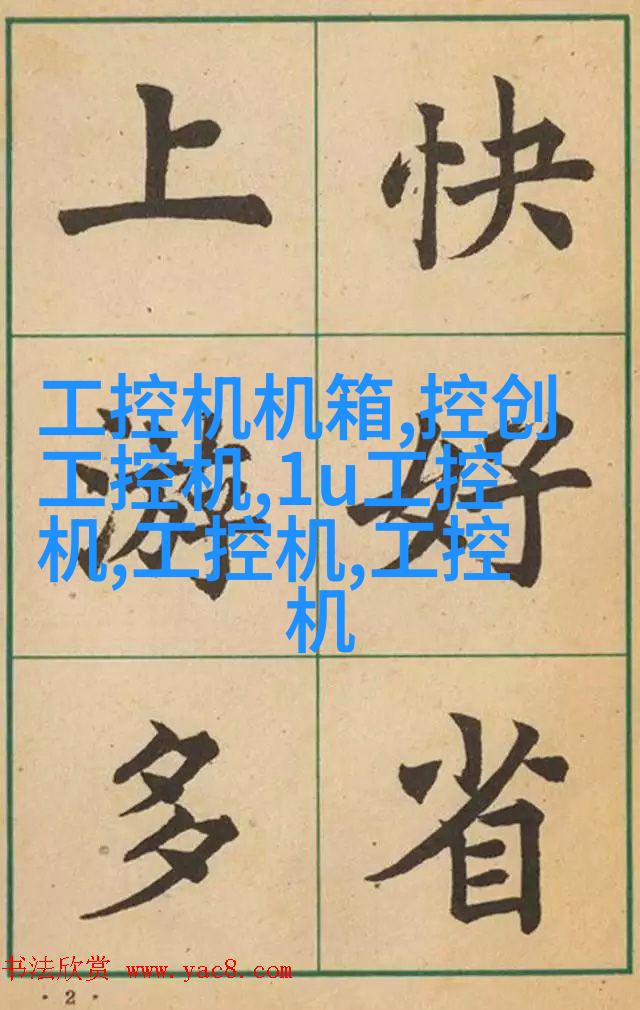 上游多
快好省
工控机机箱,控创
工控机,1u工控
机,工控机,工控
机
书法欣赏 www.yac8.com
· 2 ·